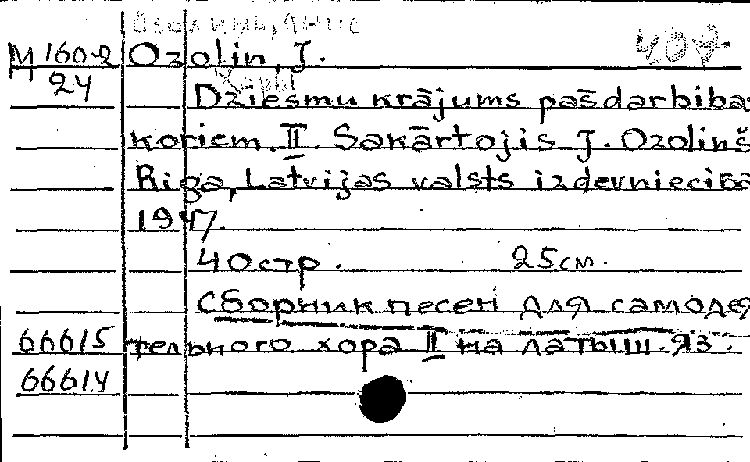 М 160-2 Ozolin, J.
24
Dziesmu krājums pašdarbibas
koriem. II. Sakārtojis J. Ozolinš
Riga, Latvijas valsts izdevniecība
1947.
40 стр. 25 см.
Сборник песен для самодея
66615 тельного хора II на латыш. яз.
66614